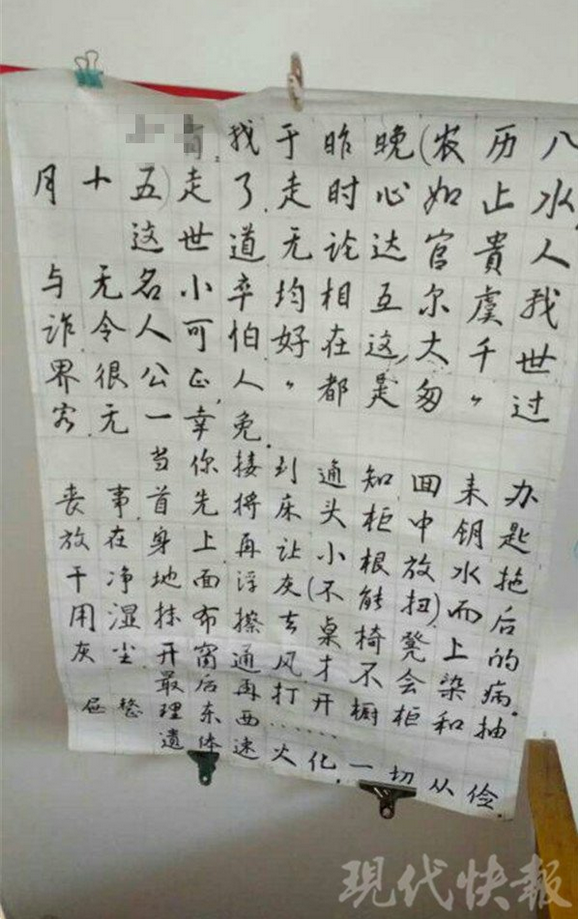 我于昨晚(农历八
月十五)走了.走时心如止水.
这世道无论达官貴人
与无名小卒均相互尔虞我
诈.令人可怕好在这,大千世
界很公正,人〃都是匆〃过
客.无一幸免.
当你接到通知回来办
丧事首先将床头柜中钥匙
放在身上再让小根放水拖
干净地面浮灰(不能扭)而后
用湿抹布擦去桌椅凳上的
灰尘开窗通风才不会染病.
最后再打开橱柜和抽
屉整理东西……
遗体速火化.一切从俭
现代快報